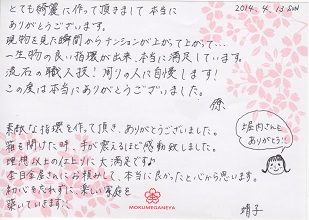 2014.4.13 SUN
とても綺麗に作って頂きまして本当に
ありがとうございます。
現物を見た瞬間からテンションが上がって上がって…
一生物の良い指環が出来、本当に満足しています。
流石の職人技!周りの人に自慢します!
この度は本当にありがとうございました。
素敵な指環を作って頂き、ありがとうございました。
箱を開けた時、手が震えるほど感動致しました。
理想以上の仕上りに大満足です♪
杢目金屋さんにお頼みして、本当に良かったと心から思います。
初心を忘れずに、楽しい家庭を
築いていきます!
堀内さんと
ありがとう!
靖子
MOKUMEGANEYA